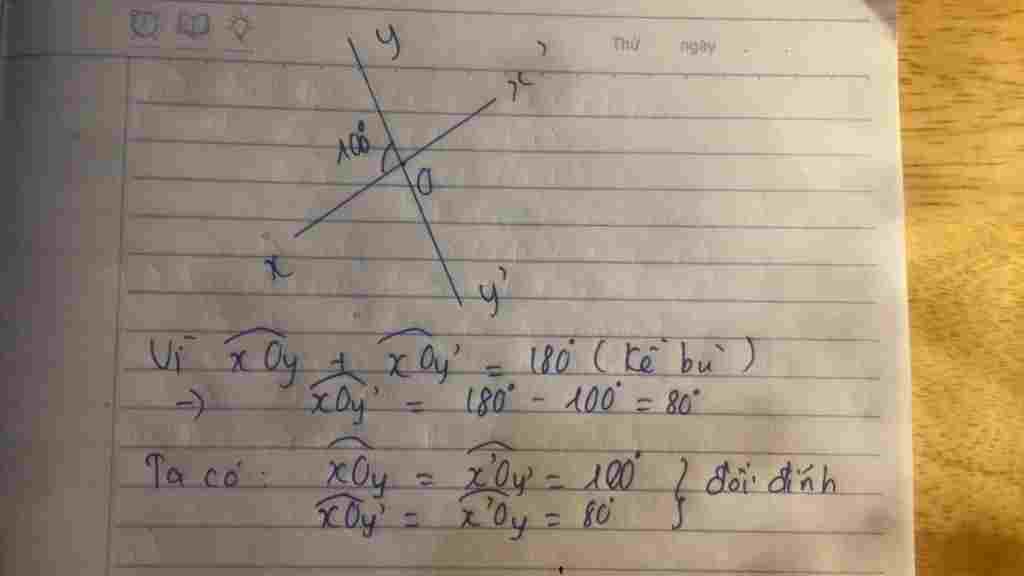 Thứ ngày
y
x'
100°
O
x
y'
Vì xOy + xOy' = 180° (kề bù)
→ xOy' = 180° - 100° = 80°
Ta có: xOy = x'Oy' = 100° } đối đỉnh
xOy' = x'Oy = 80°